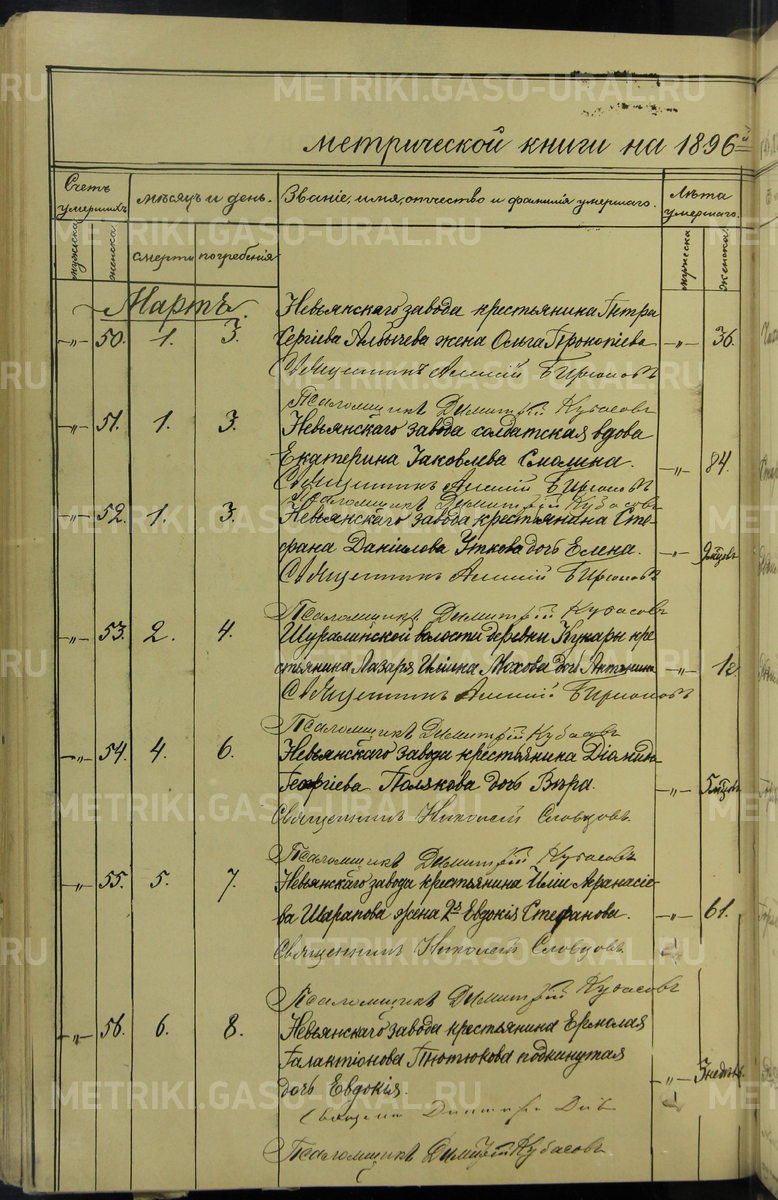 METRIKI.GASO-URAL.RU
метрической книги на 1896й
Счетъ умершихъ.
мѣсяцъ и день.
Званіе, имя, отчество и фамилія умершаго.
Лѣта умершаго.
мужеска
женска
смерти
погребенія
мужеска
женска
Мартъ.
Невьянскаго завода крестьянина Петра
-"- 50. 1. 3. Сергіева Албычева жена Ольга Прокопіева -"- 36.
Священникъ Алексій Бирюковъ
Псаломщикъ Димитрій Кубасовъ
-"- 51. 1. 3. Невьянскаго завода солдатская вдова
Екатерина Іаковлева Смолина. -"- 84.
Священникъ Алексій Бирюковъ
Псаломщикъ Димитрій Кубасовъ
-"- 52. 1. 3. Невьянскаго завода крестьянина Сте-
фана Даніилова Уткова дочь Елена. -"-
Священникъ Алексій Бирюковъ
Псаломщикъ Димитрій Кубасовъ
-"- 53. 2. 4. Шуралинской волости деревни Кунары кре-
стьянина Лазаря Иліина Мохова дочь Антонина -"-
Священникъ Алексій Бирюковъ
Псаломщикъ Димитрій Кубасовъ
-"- 54. 4. 6. Невьянскаго завода крестьянина
Георгіева Полякова дочь Вѣра. -"-
Священникъ Николай Словцовъ
Псаломщикъ Димитрій Кубасовъ
-"- 55. 5. 7. Невьянскаго завода крестьянина Иліи Аѳанасіе-
ва Шарапова жена 2я Евдокія Стефанова. -"- 61.
Священникъ Николай Словцовъ
Псаломщикъ Димитрій Кубасовъ
-"- 56. 6. 8. Невьянскаго завода крестьянина Ермолая
Галактіонова Тютюкова подкинутая
дочь Евдокія. -"-
Псаломщикъ Димитрій Кубасовъ